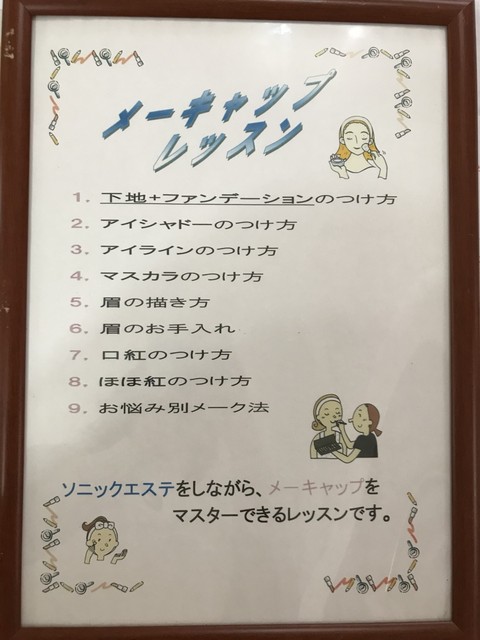 メーキャップ
レッスン
1. 下地+ファンデーションのつけ方
2. アイシャドーのつけ方
3. アイラインのつけ方
4. マスカラのつけ方
5. 眉の描き方
6. 眉のお手入れ
7. 口紅のつけ方
8. ほほ紅のつけ方
9. お悩み別メーク法
ソニックエステをしながら、メーキャップを
マスターできるレッスンです。